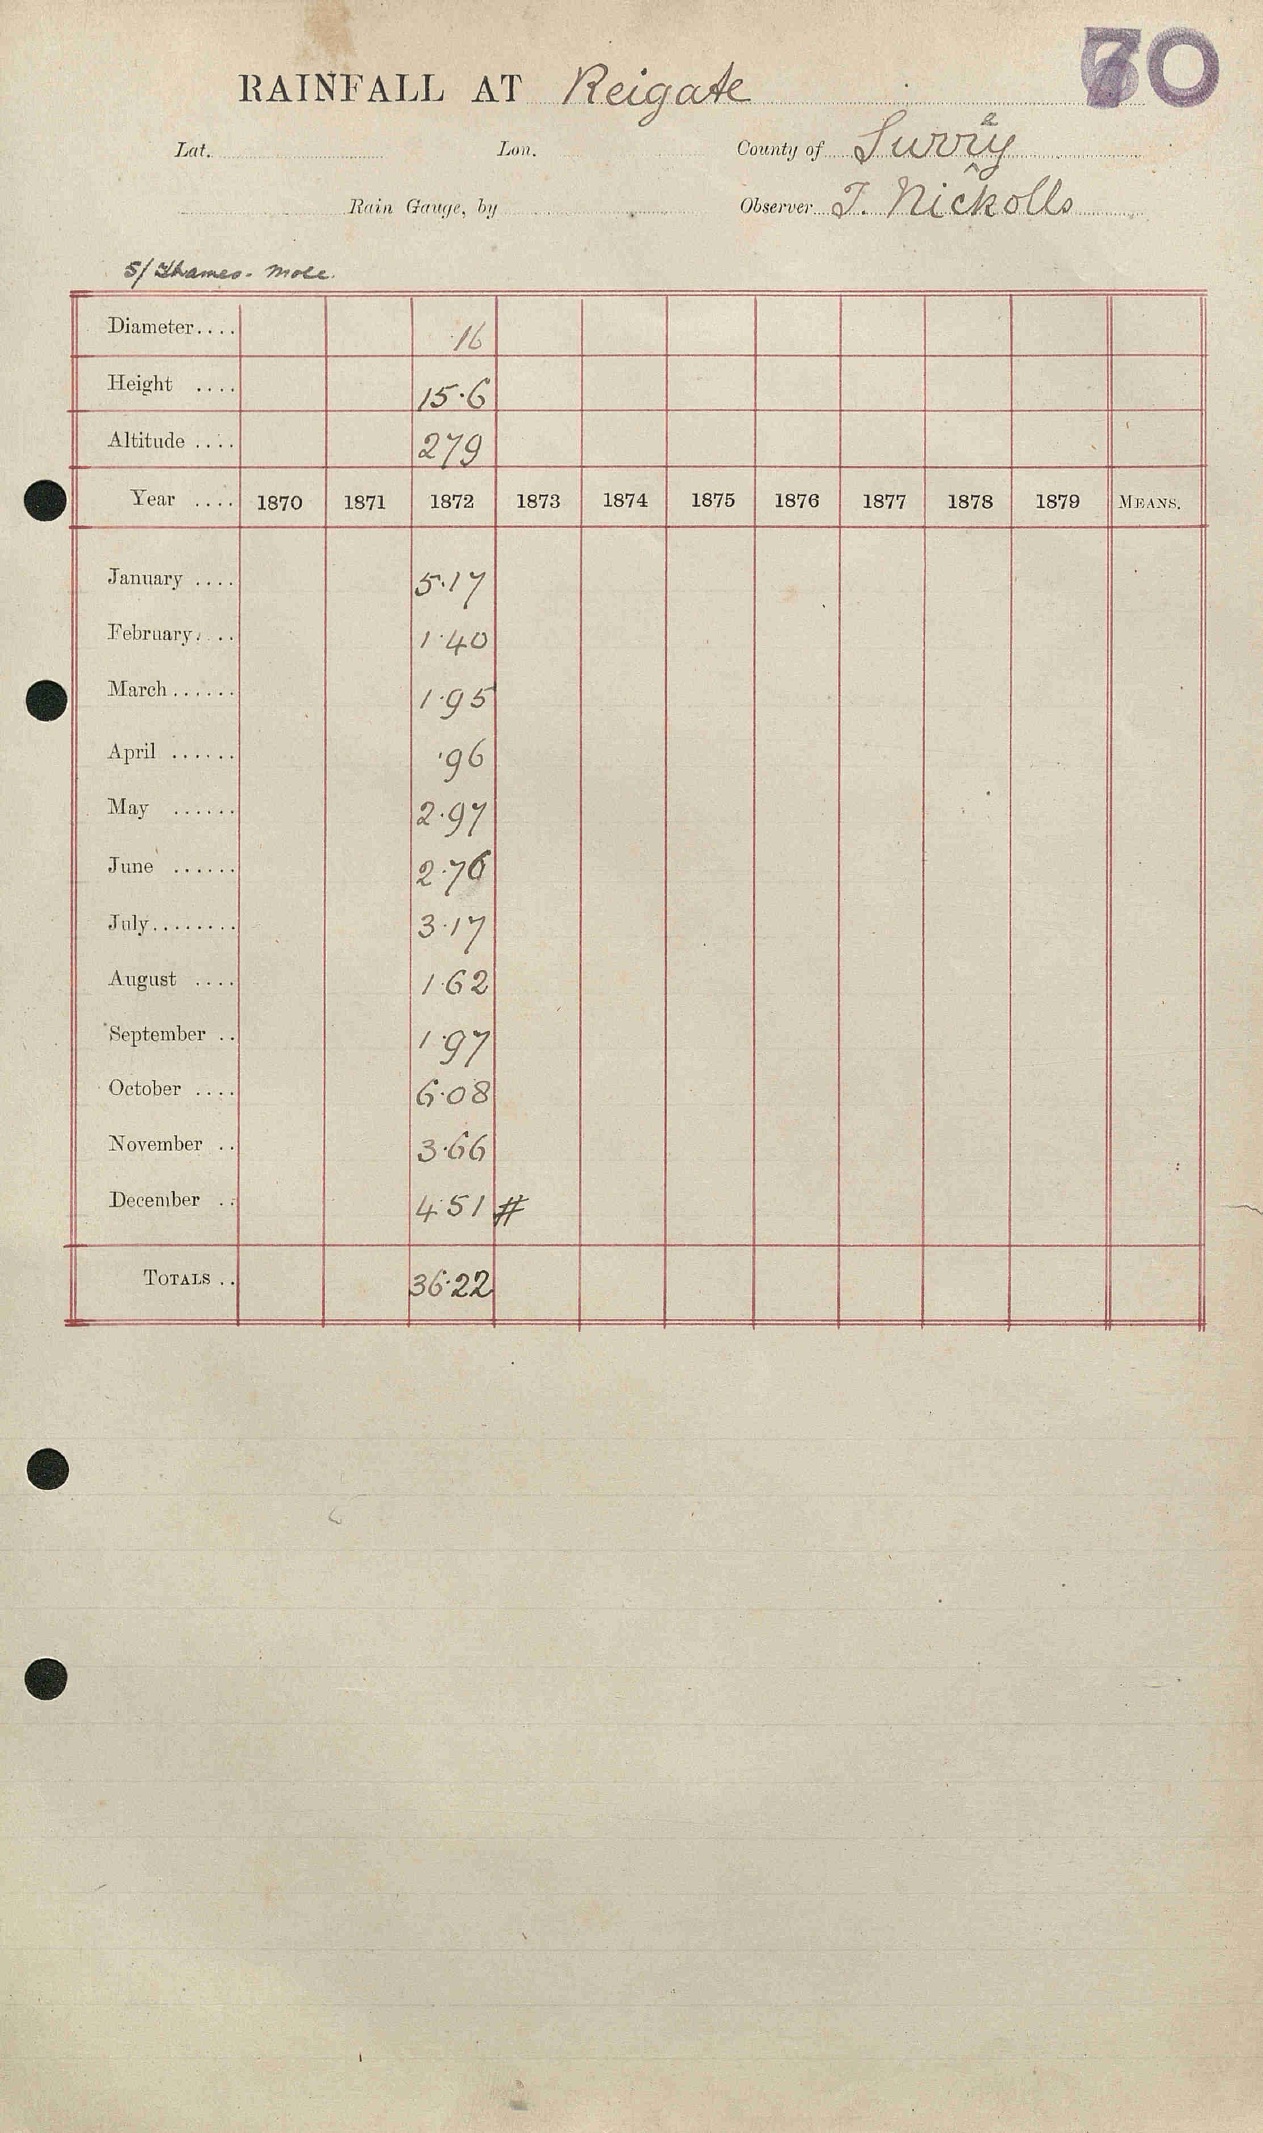 70
RAINFALL AT Reigate
Lat. Lon. County of Surrey
Rain Gauge, by Observer T. Nickolls
5/ Thames - Mole.
Diameter.... 16
Height .... 15·6
Altitude .... 279
Year .... 1870 1871 1872 1873 1874 1875 1876 1877 1878 1879 MEANS.
January .... 5·17
February... 1·40
March...... 1·95
April ...... ·96
May ...... 2·97
June ...... 2·76
July........ 3·17
August .... 1·62
September .. 1·97
October .... 6·08
November .. 3·66
December .. 4·51 #
TOTALS .. 36·22